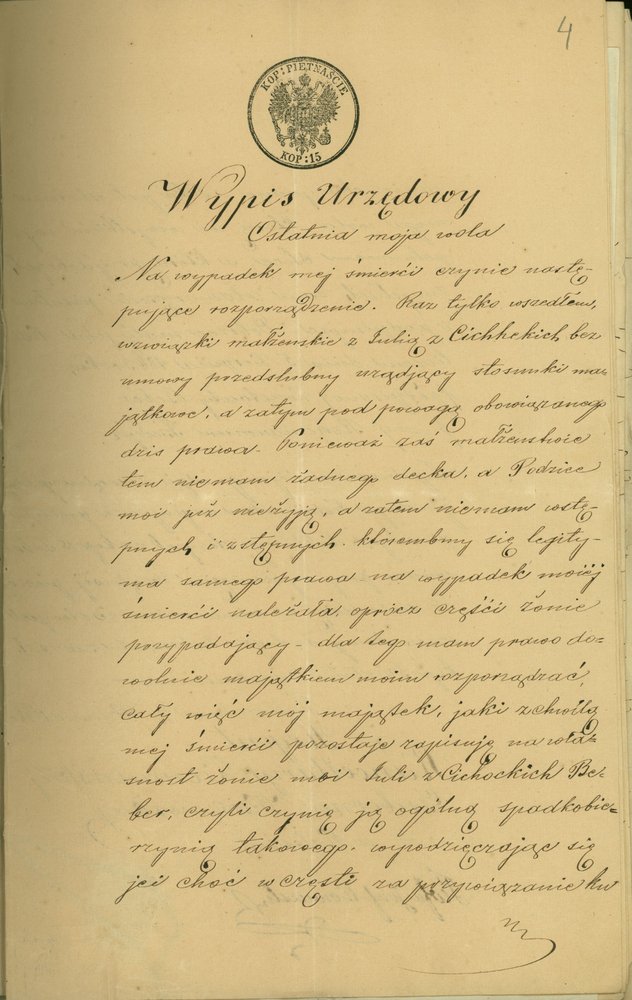 4
KOP: PIĘTNAŚCIE
KOP: 15
Wypis Urzędowy
Ostatnia moja wola
Na wypadek mej śmierći czynie nastę-
pujące rozporządzenie. Raz tylko wszedłem,
wzwiązki małżenskie z Julią z Cichhckich bez
umowy przedslubny urządjący stosunki ma-
jątkowe, a zatym pod powagą obowiązanego
dzis prawa. Ponieważ zaś małżenstwie
tem niemam żadnego decka, a Rodzice
moi już nieżyją, a zatem niemam wstę-
pnych i zstępnych. którombny się legity-
ma samego prawa na wypadek moiéj
śmierći należała, oprócz częśći żonie
przypadający - dla tego mam prawo do-
wolnie majątkiem moim rozporządzać,
cały więć mój majątek, jaki zchwilą
mej śmierći pozostaje zapisują na wła-
snost żonie moi Juli z Cichockich Be-
ber, czyli czynię ją ogólną spadkobie-
rzynią takowego. wypodzięczając się
jei choć wczęsti za przywiązanie ku